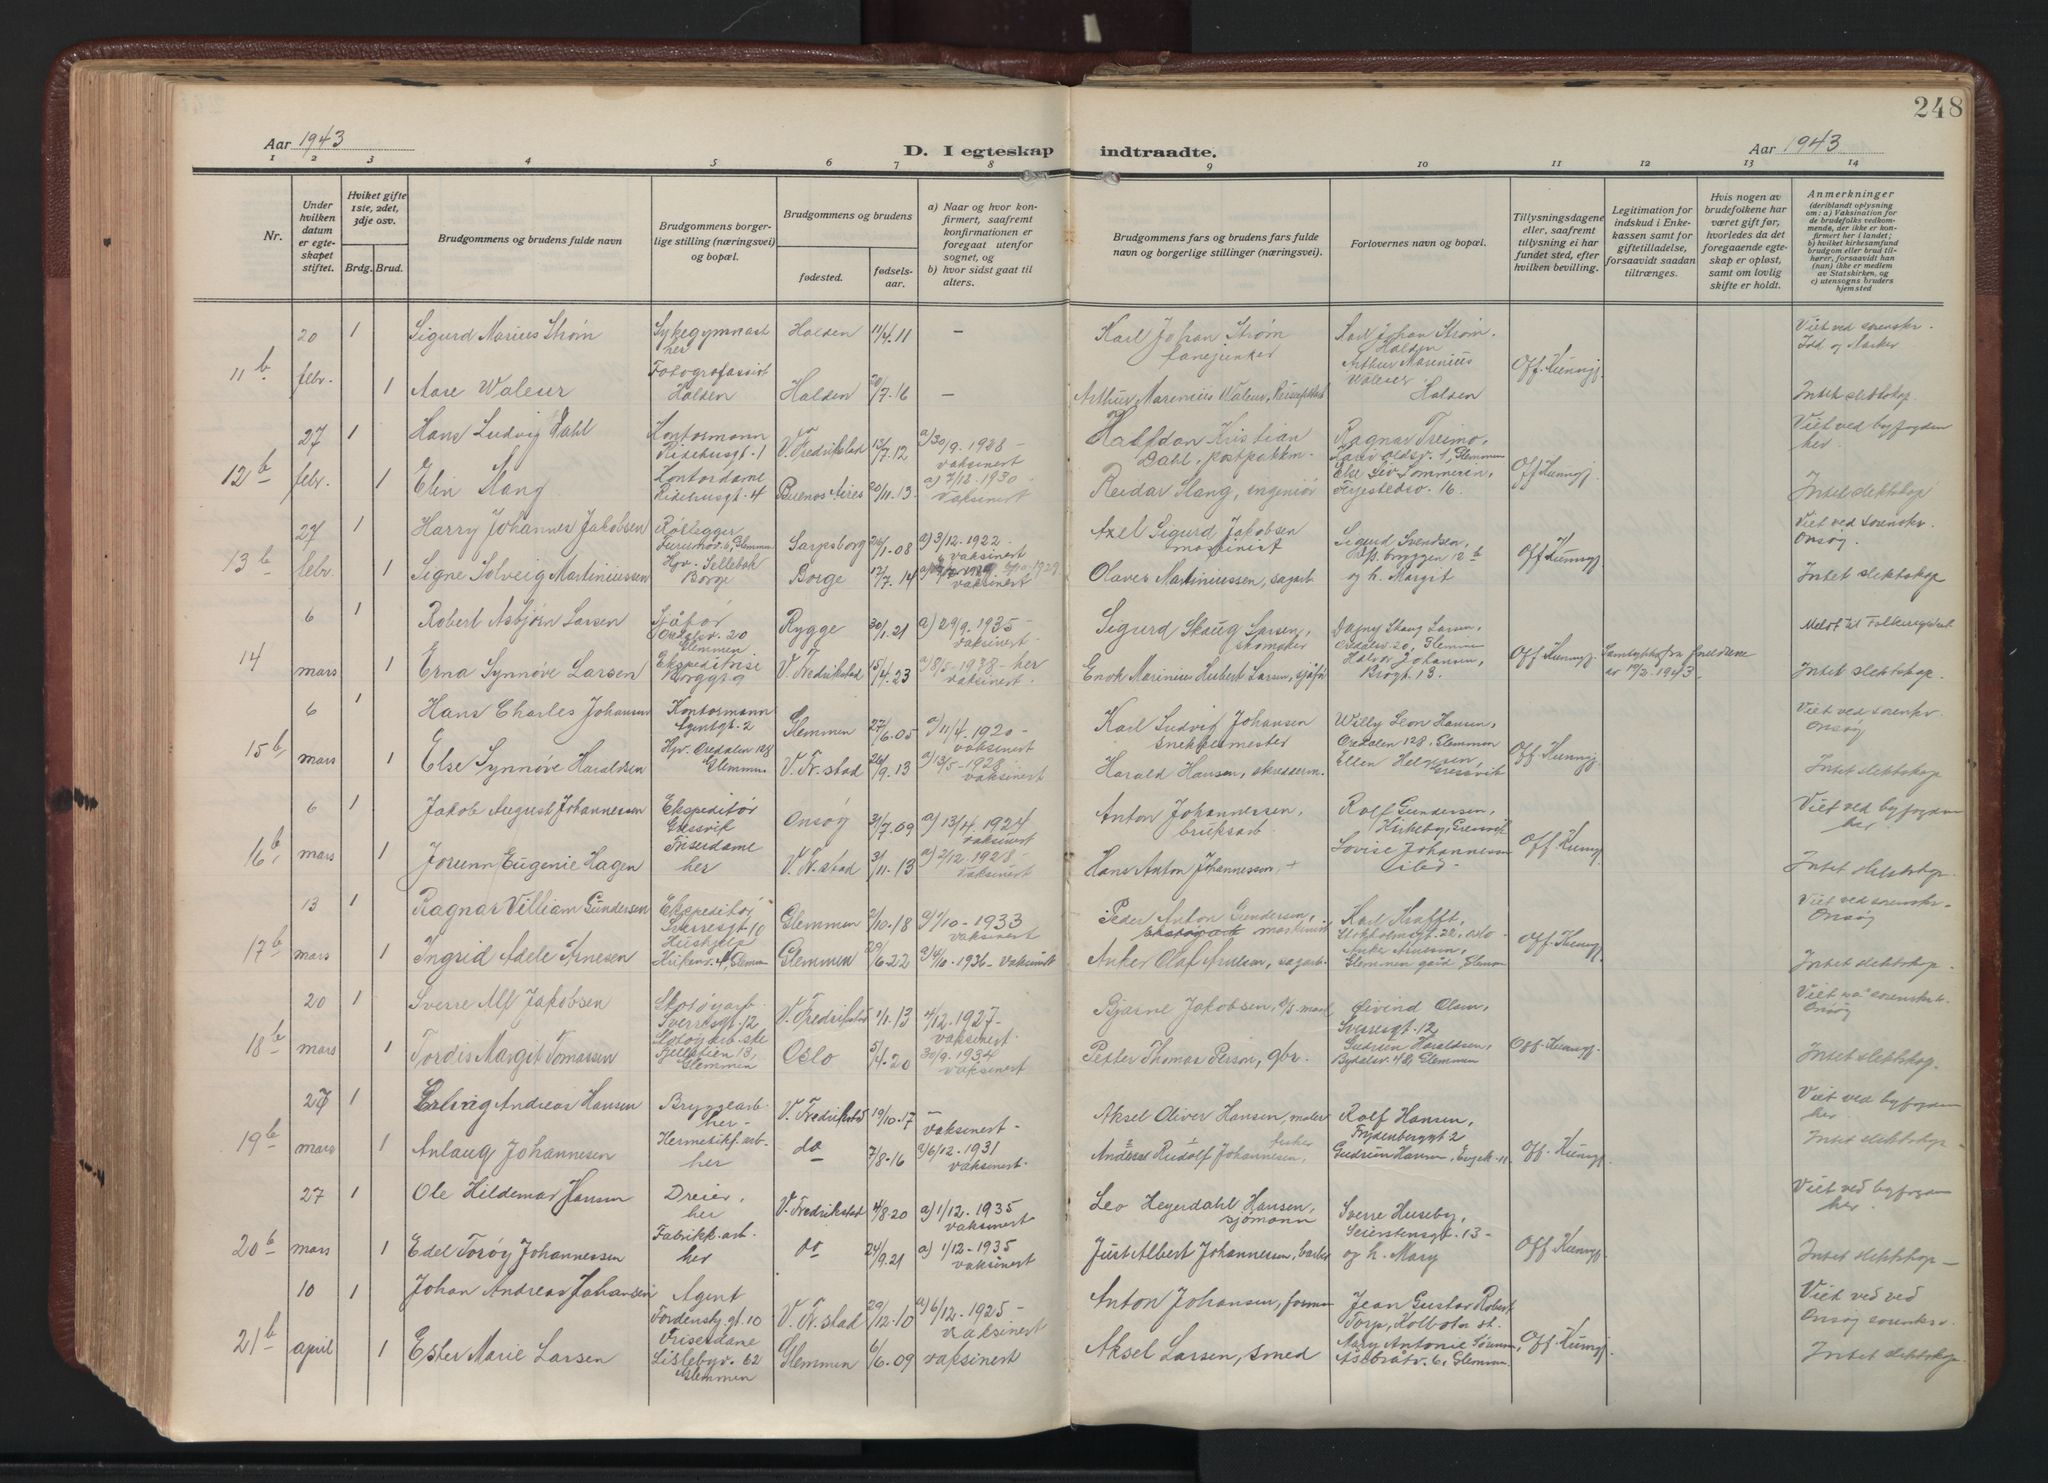 248
Aar 1943
D. I egteskap indtraadte.
Aar 1943
1 2 3 4 5 6 7 8 9 10 11 12 13 14
Nr.
Under hvilken datum er egteskapet stiftet.
Hviket gifte 1ste, 2det, 3dje osv.
Brdg. Brud.
Brudgommens og brudens fulde navn
Brudgommens borgerlige stilling (næringsvei) og bopæl.
Brudgommens og brudens
fødested.
fødselsaar.
a) Naar og hvor konfirmert, saafremt konfirmationen er foregaat utenfor sognet, og
b) hvor sidst gaat til alters.
Brudgommens fars og brudens fars fulde navn og borgerlige stillinger (næringsvei).
Forlovernes navn og bopæl.
Tillysningsdagene eller, saafremt tillysning ei har fundet sted, efter hvilken bevilling.
Legitimation for indskud i Enkekassen samt for giftetilladelse, forsaavidt saadan tiltrænges.
Hvis nogen av brudefolkene har været gift før, hvorledes da det foregaaende egteskap er opløst, samt om lovlig skifte er holdt.
Anmerkninger
(deriblandt oplysning om: a) Vaksination for de brudefolks vedkommende, der ikke er konfirmert her i landet; b) hvilket kirkesamfund brudgom eller brud tilhører, forsaavidt han (nun) ikke er medlem av Statskirken, og c) utensogns bruders hjemsted
11b 20 febr. 1 Sigurd Marius Strøm Sykegymnast her Halden 11/4.11 – Karl Johan Strøm fanejunker Karl Johan Strøm. Halden Viet ved sorenskr. Idd og Marker
1 Aase Waleur Halden Halden 20/7.16 – Arthur Marinius Waleur, Arthur Marinius Waleur Halden Off. Kunngj. Intet slektskap.
12b 27 febr. 1 Hans Ludvig Dahl Kontormann Ridehusgt. 1 V. Fredrikstad 13/7.12 a) 30/9.1928 – vaksinert Halfdan Kristian Dahl, postpakkm. Ragnar Treimo, Glemmen Viet ved byfogden her.
1 Elin Stang Kontordame Ridehusgt. 4 Buenos Aires 20/11.13 a) 7/12.1930 – vaksinert Reidar Stang, ingeniør 16. Off. Kunngj. Intet slektskap
13b 27 febr. 1 Harry Johannes Jakobsen Rørlegger Glemmen Sarpsborg 26/1.08 a) 3/12.1922 – vaksinert Axel Sigurd Jakobsen maskinist Sigurd Svendsen, bryggen 12b Viet ved sorenskr. Onsøy
1 Signe Solveig Martiniussen Hjv. Sellebak Borge Borge 12/7.14 vaksinert Olaves Martiniussen, sagarb. og h. Margit Off. Kunngj. Intet slektskap
14 6 mars 1 Robert Asbjørn Larsen Sjåfør Oredalsv. 20 Glemmen Rygge 30/1.21 a) 29/9.1935 – vaksinert Sigurd Skaug Larsen, skomaker Dagny Skaug Larsen, Oredalsv. 20, Glemmen Meldt til Folkeregistret
1 Erna Synnøve Larsen Ekspeditrise Borggt. 9 V. Fredrikstad 15/4.23 a) 8/5.1938 – her vaksinert. Enok Marinius Hubert Larsen, sjåfør Halvor Johansen, Brogt. 13. Off. Kunngj. Samtykke fra foreldrene er 19/2.1943. Intet slektskap.
15b 6 mars 1 Hans Charles Johansen Kontormann Agentgt. 2 Glemmen 27/6.05 a) 11/4.1920 – vaksinert Karl Ludvig Johansen snekkermester Willy Leon Hansen, Oredalen 128, Glemmen Viet ved sorenskr. Onsøy
1 Else Synnøve Haraldsen Hjv. Oredalen 128 Glemmen V. Fr.stad 26/9.13 a) 13/5.1928 – vaksinert Harald Hansen, skredderm. Ellen Helgesen, Gressvik Off. Kunngj. Intet slektskap.
16b 6 mars 1 Jakob August Johannessen Ekspeditør Gressvik Onsøy 31/7.09 a) 13/4.1924 vaksinert Anton Johannessen, bruksarb. Rolf Gundersen, Kirkeby, Gressvik Viet ved byfogden her.
1 Jorunn Eugenie Hagen Friserdame her V. Fr.stad 3/11.13 a) 2/12.1928 – vaksinert Hans Anton Johannessen, + Lovise Johannessen Off. Kunngj. Intet slektskap.
17b 13 mars 1 Ragnar Villiam Gundersen Ekspeditør Sverresgt. 10 Glemmen 2/10.18 a) 1/10.1933 vaksinert Peder Anton Gundersen, maskinist Karl Krafft, Oslo Viet ved sorenskr. Onsøy
1 Ingrid Adele Arnesen Hushjelp Glemmen Glemmen 29/6.22 a) 4/10.1936 – vaksinert Anker Olaf Arnesen, sagarb. Anker Arnesen, Glemmen gård, Glemm. Off. Kunngj. Intet slektskap.
18b 20 mars 1 Sverre Alf Jakobsen Skotøyarb. Sverresgt. 12 V. Fredrikstad 1/1.13 4/12.1927 – vaksinert Bjarne Jakobsen, Øivind Olsen, Sverresgt. 12 Viet ved sorenskr. Onsøy
1 Tordis Margit Tomassen Skotøyarb.ske 13, Glemmen Oslo 5/4.20 30/9.1934 vaksinert Petter Thomas Person, gbr. Gudrun Haraldsen, Glemmen Off. Kunngj. Intet slektskap.
19b 27 mars 1 Erling Andreas Hansen Bryggearb. her – V. Fredrikstad 19/10.17 – vaksinert – Aksel Oliver Hansen, maler Rolf Hansen, Frydenberggt 2 Viet ved byfogden her.
1 Anlaug Johannesen Hermetikf.arb. her do 7/8.16 a) 6/12.1931 vaksinert. Andreas Rudolf Johannesen, fisker Gudrun Hansen, Off. Kunngj. Intet slektskap –
20b 27 mars 1 Ole Hildemar Hansen Dreier, her V. Fredrikstad 4/8.20 a) 1/12.1935 vaksinert. Leo Heyerdahl Hansen, sjømann Sverre Huseby, 13 – Viet ved byfogden her.
1 Edel Torøy Johannessen Fabrikk.arb. her do 24/9.21 a) 1/12.1935 vaksinert Just Albert Johannessen, og h. Mary Off. Kunngj. Intet slektskap –
21b 10 april 1 Johan Andreas Johansen Agent Tordenskj.gt. 10 V. Fr.stad 29/12.10 a) 6/12.1925 – vaksinert Anton Johansen, formann Jean Gustav Robert Torp, Kolbotn st. Viet ved ved Onsøy sorenskr.
1 Ester Marie Larsen Friserdame Lislebyv. 62 Glemmen Glemmen 6/6.09 vaksinert Aksel Larsen, smed Mary Antonie Glemmen. Off. Kunngj. Intet slektskap.